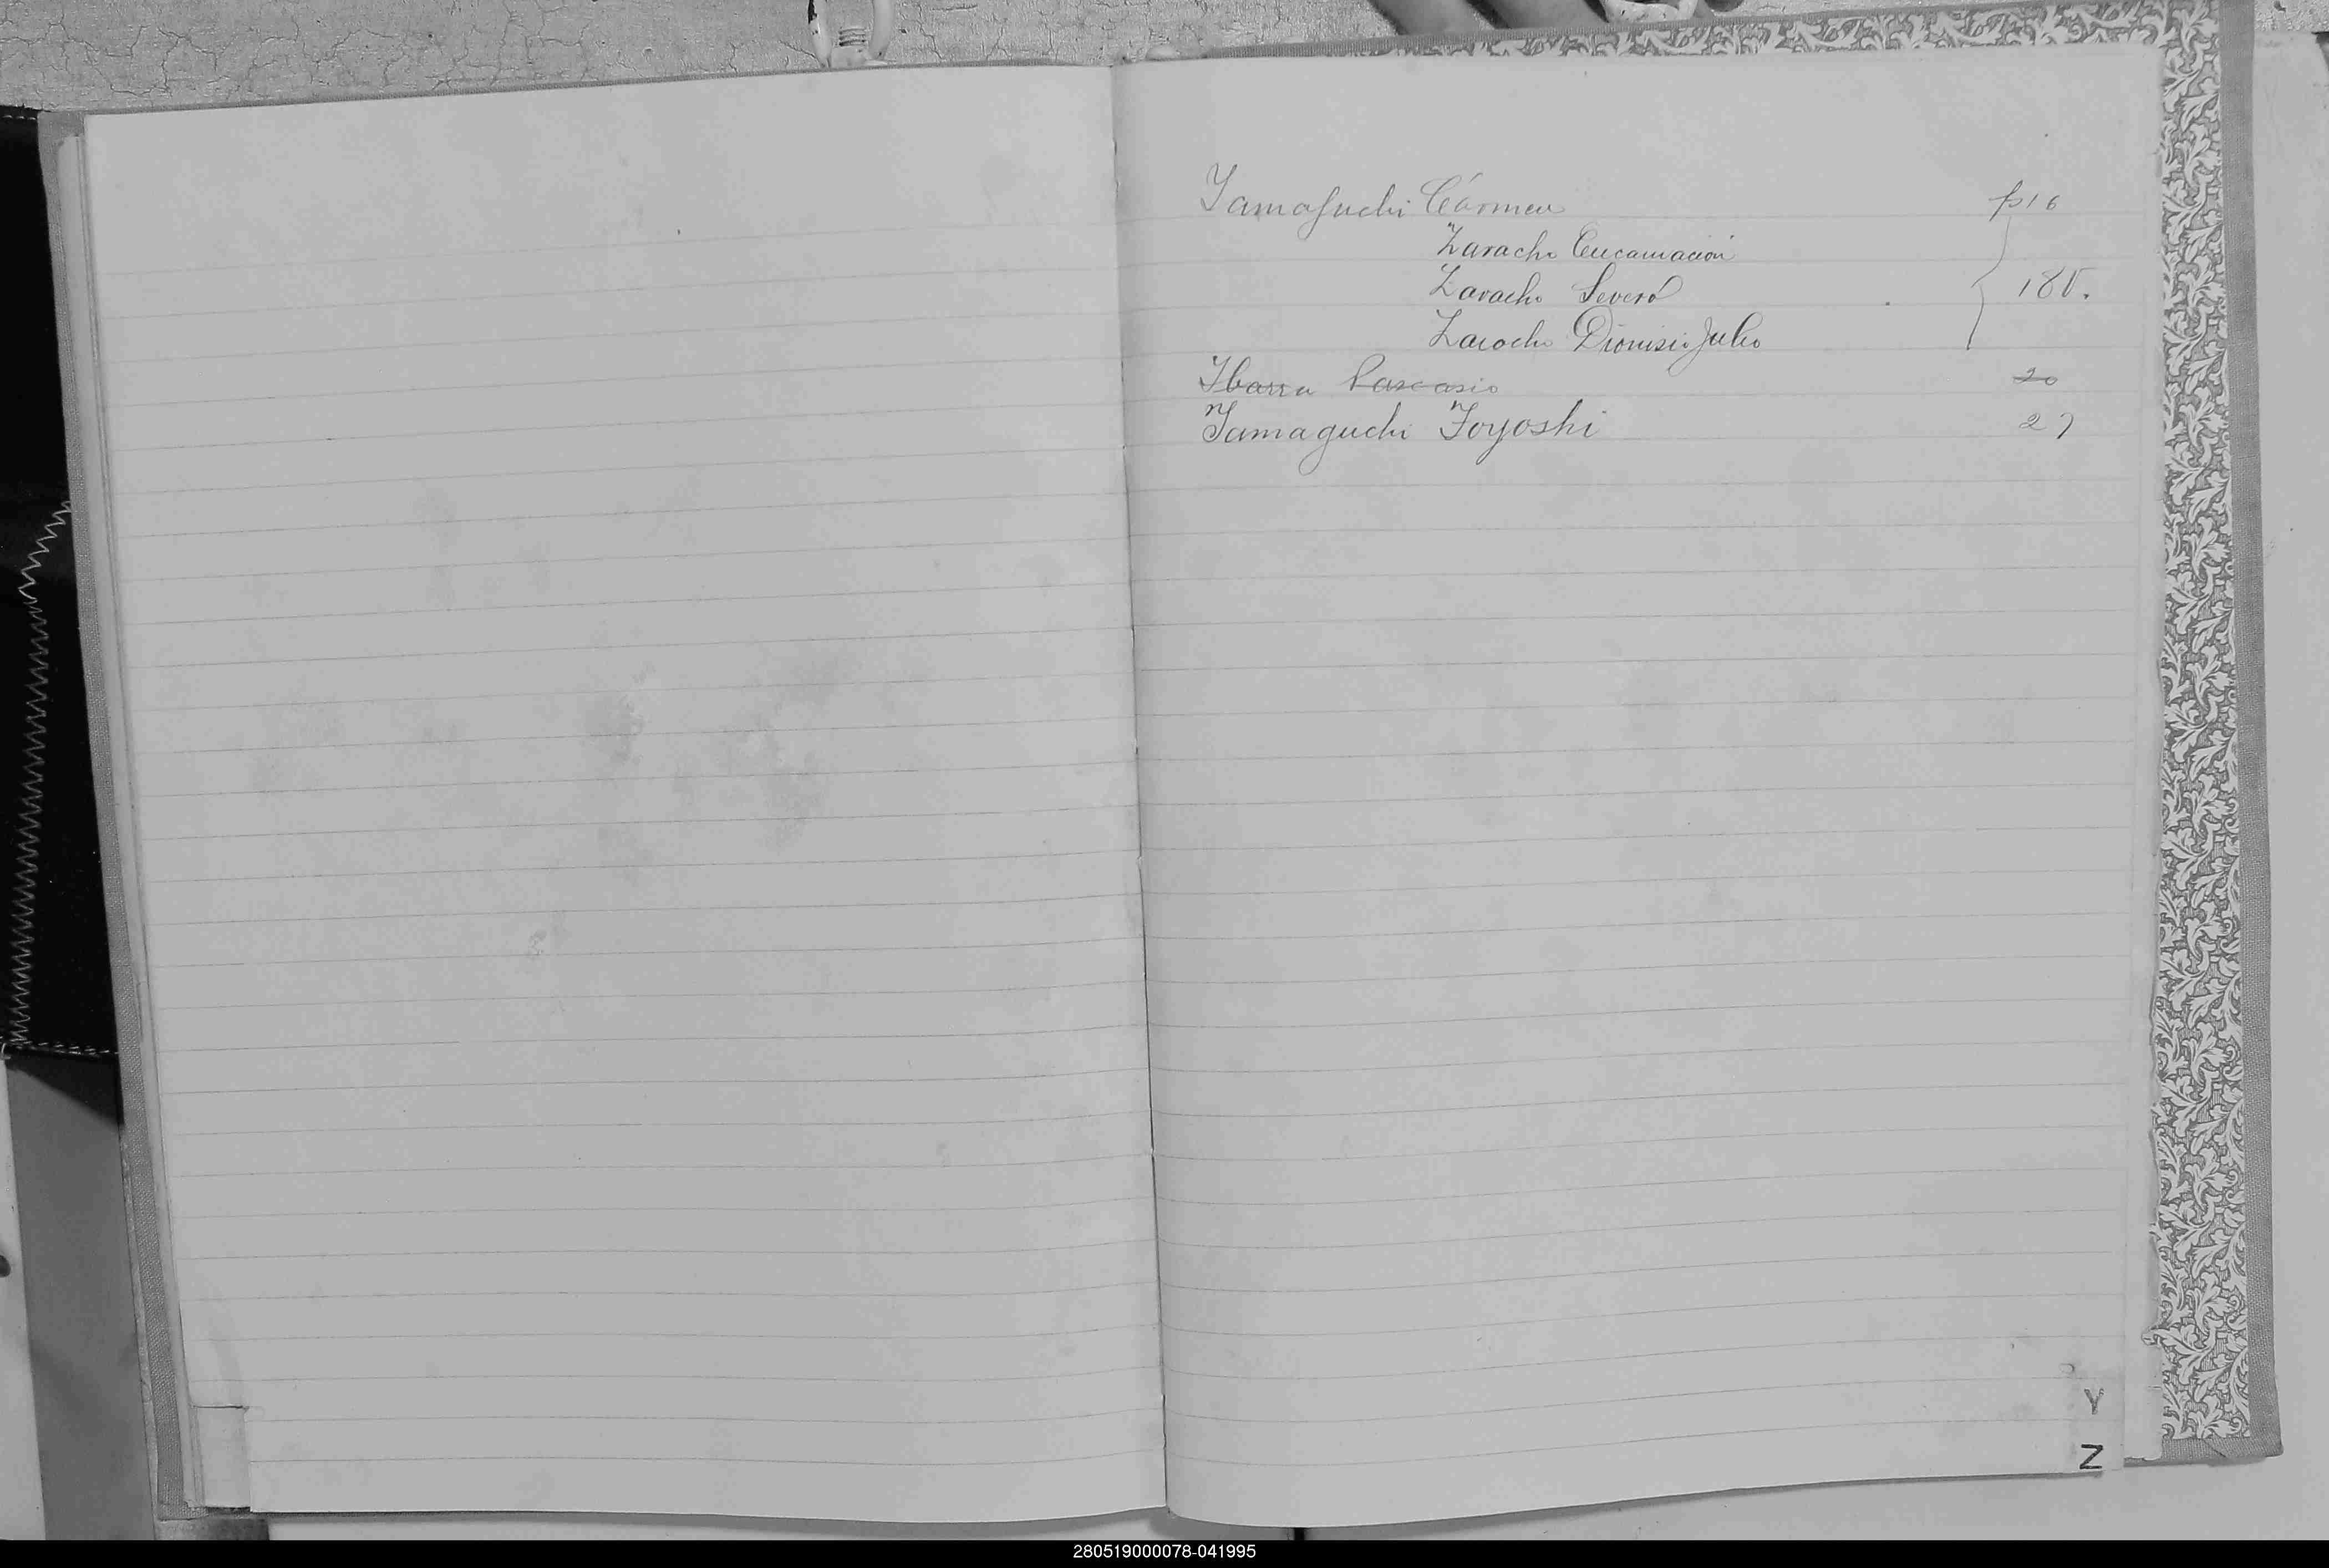 Yamaguchi Cármen p 16
Zaracho Encarnación
Zaracho Severo 185.
Zaracho Dionisio Julio
Ybarra Pascasio 20
Yamaguchi Toyoshi 27
Y
Z
280519000078-041995